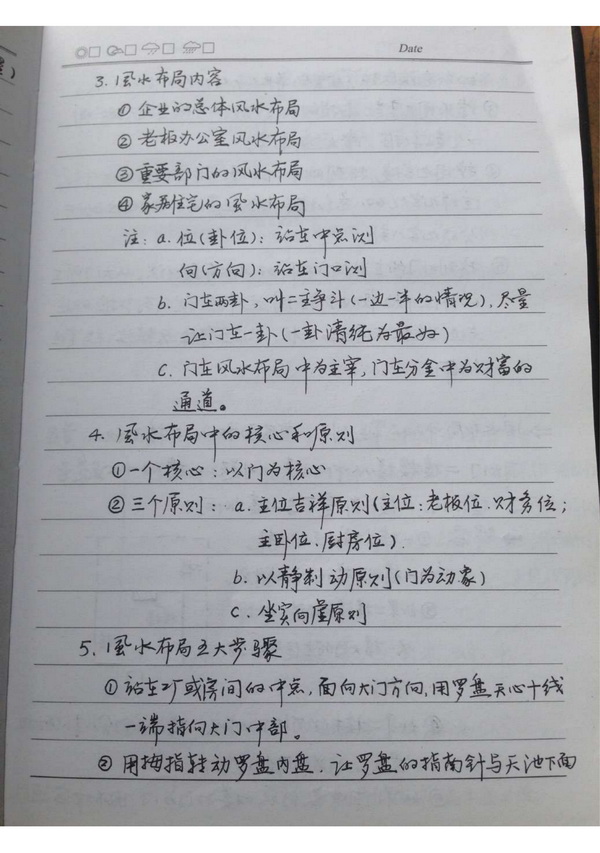 Date
3. 風水布局内容
① 企业的总体风水布局
② 老板办公室风水布局
③ 重要部门的风水布局
④ 家居住宅的風水布局
注: a. 位(卦位): 站在中点测
向(方向): 站在门口测
b. 门在两卦, 叫二主争斗(一边一半的情况), 尽量
让门在一卦(一卦清纯为最好)
c. 门在风水布局中为主宰, 门在分金中为财富的
通道。
4. 風水布局中的核心和原则
①一个核心: 以门为核心
②三个原则: a. 主位吉祥原则(主位: 老板位、财务位;
主卧位、厨房位).
b. 以静制动原则(门为动象)
c. 坐实向虚原则
5. 風水布局五大步骤
① 站在工厂或房间的中点, 面向大门方向, 用罗盘天心十线
一端指向大门中部。
② 用拇指转动罗盘内盘, 让罗盘的指南针与天池下面